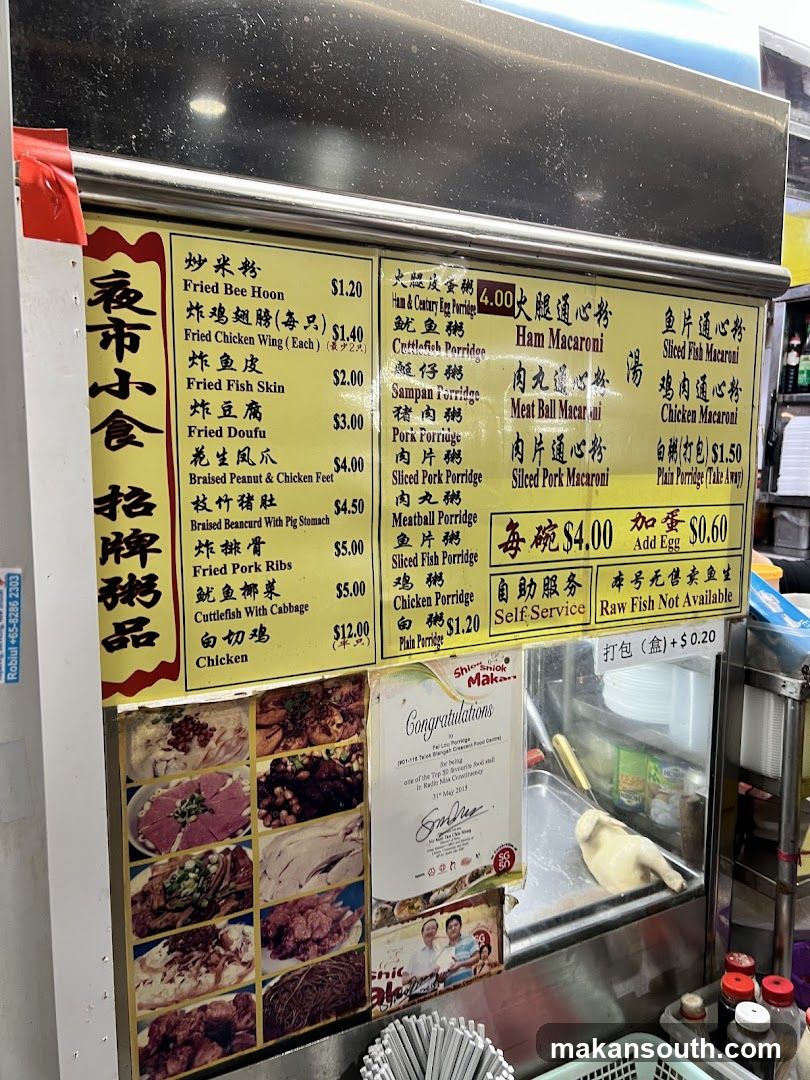 夜市小食 招牌粥品
炒米粉
Fried Bee Hoon $1.20
炸鸡翅膀(每只)
Fried Chicken Wing ( Each ) $1.40
(最少2只)
炸鱼皮
Fried Fish Skin $2.00
炸豆腐
Fried Doufu $3.00
花生凤爪
Braised Peanut & Chicken Feet $4.00
枝竹猪肚
Braised Beancurd With Pig Stomach $4.50
炸排骨
Fried Pork Ribs $5.00
鱿鱼椰菜
Cuttlefish With Cabbage $5.00
白切鸡
Chicken $12.00
(半只)
火腿皮蛋粥
Ham & Century Egg Porridge 4.00
鱿鱼粥
Cuttlefish Porridge
艇仔粥
Sampan Porridge
猪肉粥
Pork Porridge
肉片粥
Sliced Pork Porridge
肉丸粥
Meatball Porridge
鱼片粥
Sliced Fish Porridge
鸡粥
Chicken Porridge
白粥
Plain Porridge $1.20
火腿通心粉
Ham Macaroni
肉丸通心粉
Meat Ball Macaroni
肉片通心粉
Silced Pork Macaroni
湯
鱼片通心粉
Sliced Fish Macaroni
鸡肉通心粉
Chicken Macaroni
白粥(打包) $1.50
Plain Porridge (Take Away)
每碗$4.00 加蛋 $0.60
Add Egg
自助服务
Self Service
本号无售卖鱼生
Raw Fish Not Available
打包（盒）+ $ 0.20
Shiok Shiok
Makan
Congratulations
to
Fei Lou Porridge
(#01-116 Telok Blangah Crescent Food Centre)
for being
one of the Top 50 favourite food stall
in Radin Mas Constituency
31st May 2015
SG
50
Robiul +65-8286 2303
makansouth.com